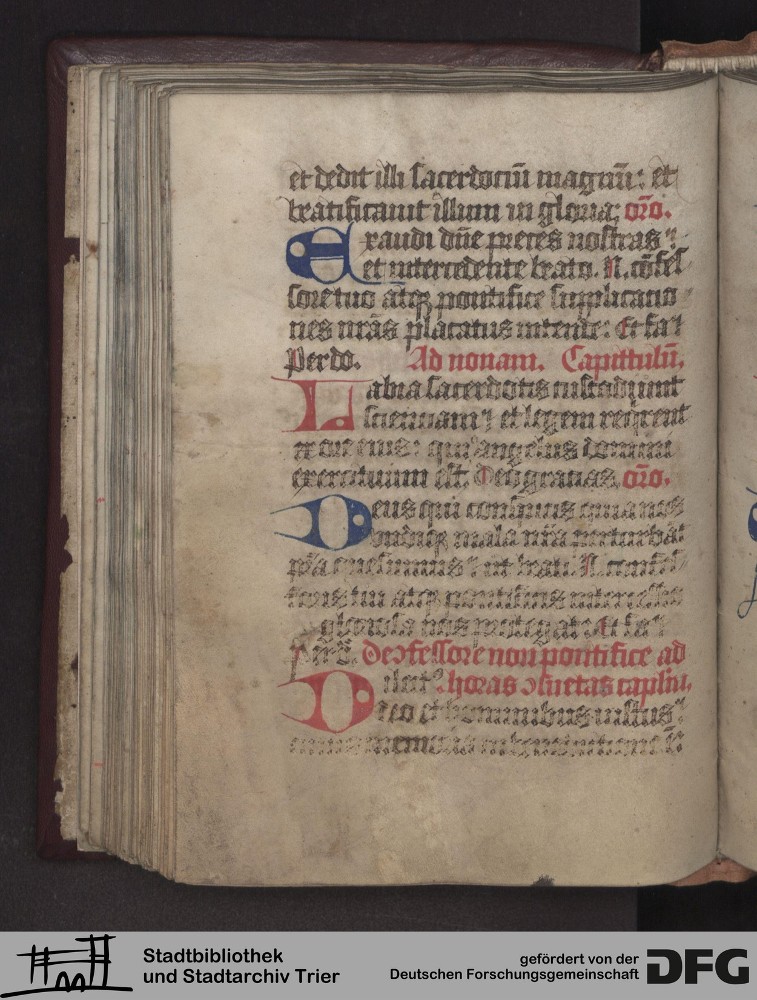 et dedit illi sacerdociū magnū: et
beatificauit illum in gloria; or̄o.
Exaudi dn̄e preces nostras ⁊
et intercedente beato .N. cōfes
sore tuo atqꝫ pontifice supplicatio
nes nr̄as placatus intende: Et fa⁊
Per do. Ad nonam. Capitulū.
Labia sacerdotis custodiunt
scientiam ⁊ et legem reqͥrent
ex ore eius: quia angelus domini
exercituum est. Deo gratias. or̄o.
Deus qui conspicis quia nos
undiqꝫ mala nr̄a perturbāt
pr̄a quesumus ⁊ ut beati .N. confes
soris tui atqꝫ pontificis intercessio
gloriosa nos protegat: Et fa⁊
Per ū. De ꝯfessore non pontifice ad
Dilectꝰ horas ꝯsuetas capl̄m.
deo et hominibus iustus ⁊
cuius memoria in benedictione ē
Stadtbibliothek
und Stadtarchiv Trier
gefördert von der
Deutschen Forschungsgemeinschaft
DFG